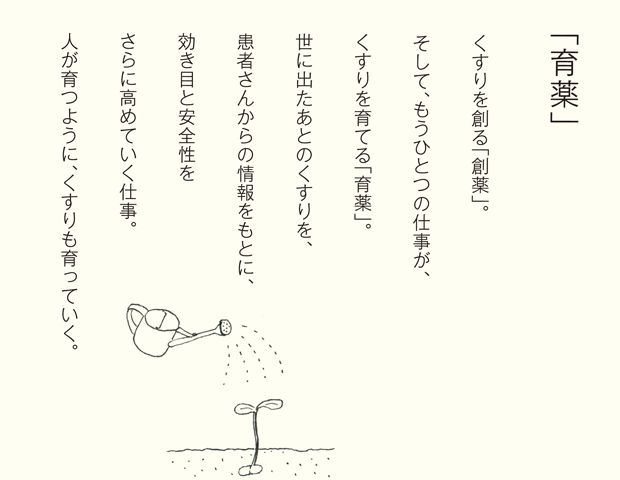 「育薬」
くすりを創る「創薬」。
そして、もうひとつの仕事が、
くすりを育てる「育薬」。
世に出たあとのくすりを、
患者さんからの情報をもとに、
効き目と安全性を
さらに高めていく仕事。
人が育つように、くすりも育っていく。